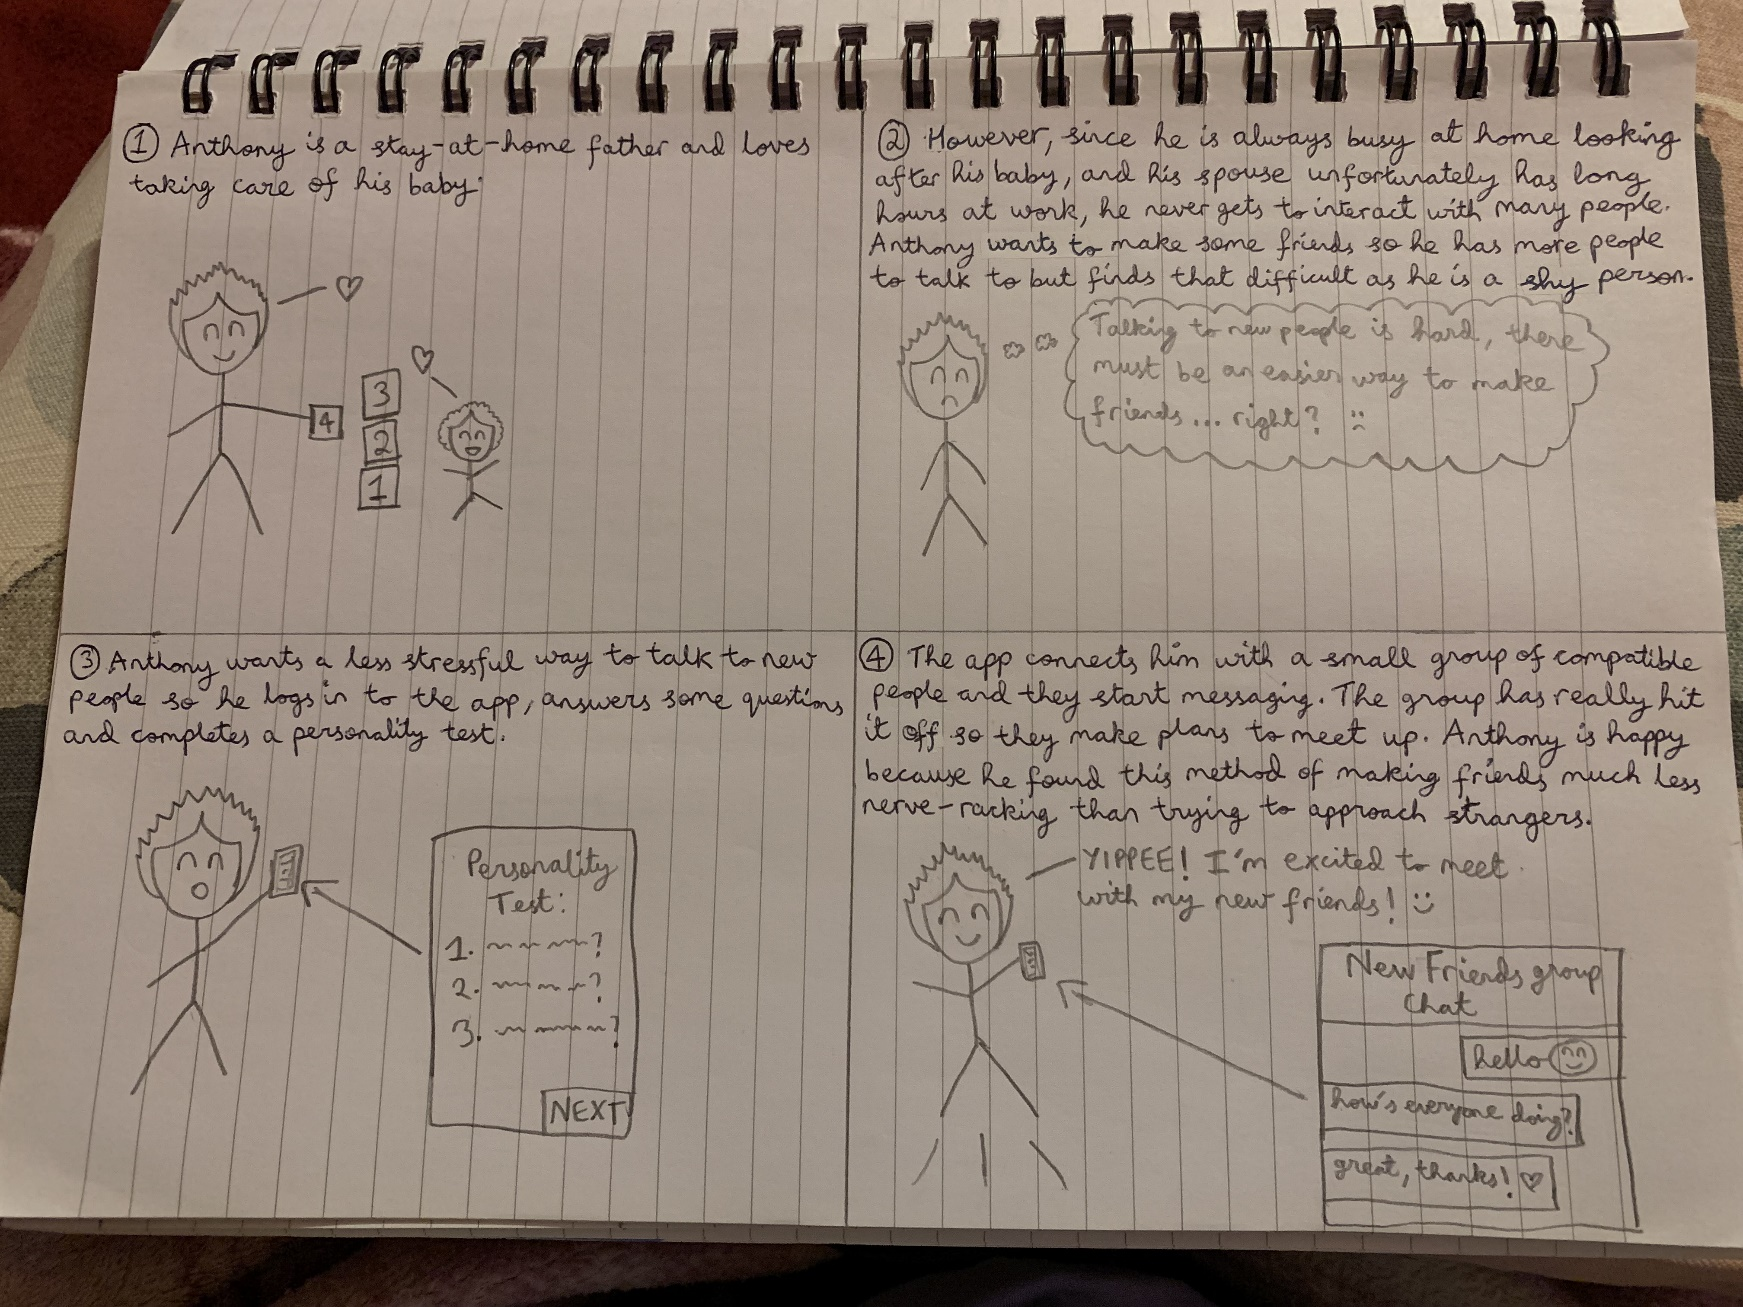 ① Anthony is a stay-at-home father and loves
taking care of his baby.
4
3
2
1
② However, since he is always busy at home looking
after his baby, and his spouse unfortunately has long
hours at work, he never gets to interact with many people.
Anthony wants to make some friends so he has more people
to talk to but finds that difficult as he is a shy person.
Talking to new people is hard, there
must be an easier way to make
friends... right? :(
③ Anthony wants a less stressful way to talk to new
people so he logs in to the app, answers some questions
and completes a personality test.
Personality
Test:
1. ~~~~?
2. ~~~~?
3. ~~~~?
NEXT
④ The app connects him with a small group of compatible
people and they start messaging. The group has really hit
it off so they make plans to meet up. Anthony is happy
because he found this method of making friends much less
nerve-racking than trying to approach strangers.
YIPPEE! I'm excited to meet
with my new friends! :)
New Friends group
Chat
hello
how's everyone doing?
great, thanks! ♡